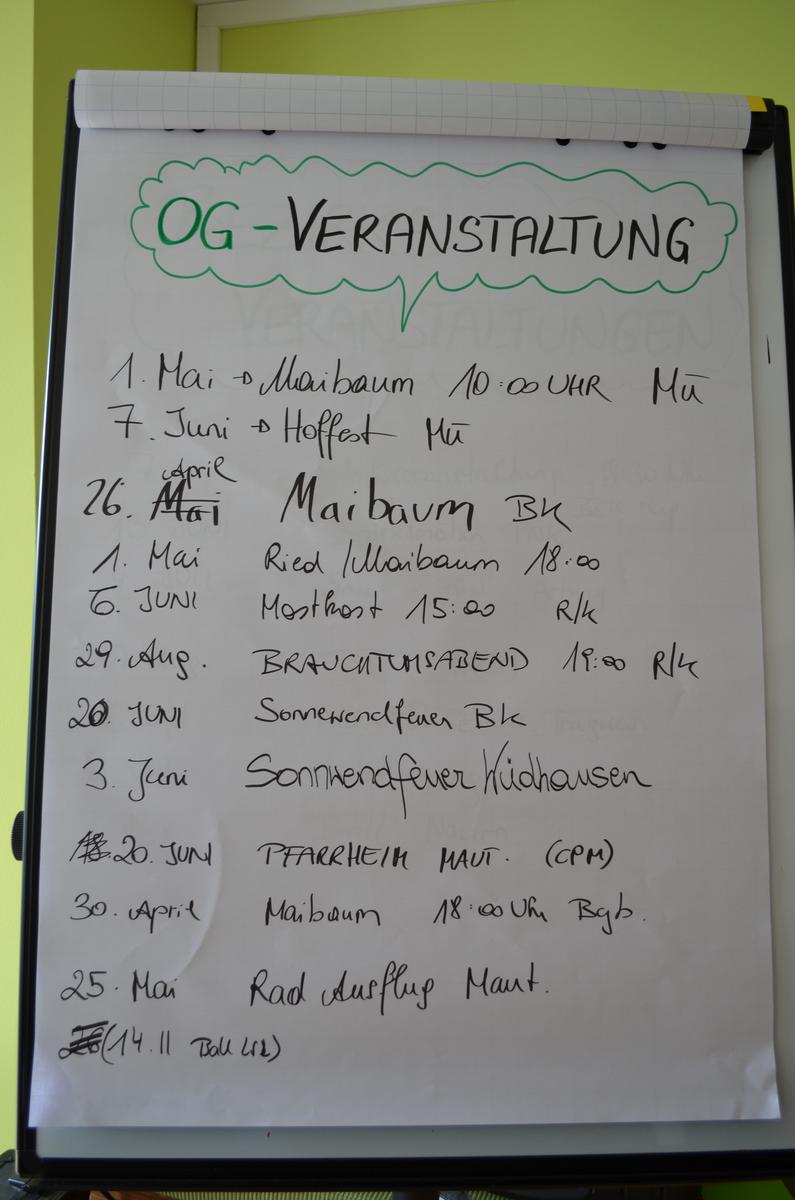 OG-VERANSTALTUNG
1. Mai → Maibaum 10:00 UHR Mü
7. Juni → Hoffest Mü
April
26. Mai Maibaum BK
1. Mai Ried/Maibaum 18:00
6. JUNI Mostkost 15:00 R/k
29. Aug. BRAUCHTUMSABEND 19:00 R/k
20. JUNI Sonnewendfeuer Bk
3. Juni Sonnwendfeuer Windhausen
20. JUNI PFARRHEIM MAUT. (CPM)
30. April Maibaum 18:00 Uhr Bgb.
25. Mai Rad Ausflug Maut.
(14.11 Ball